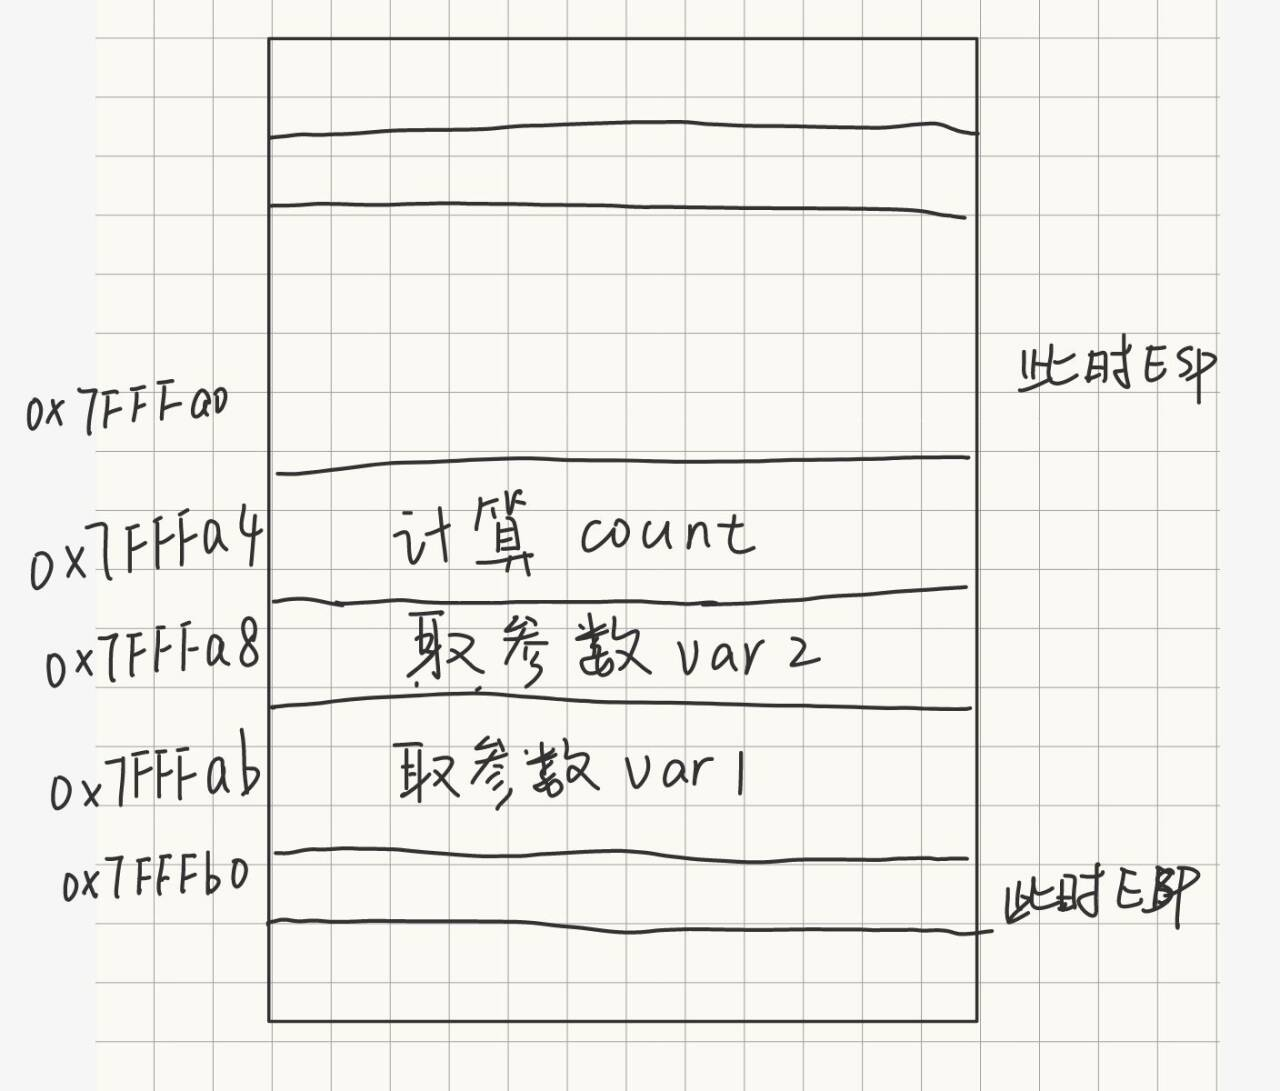 此时ESP
0x7FFFa0
0x7FFFa4 计算 count
0x7FFFa8 取参数 var2
0x7FFFab 取参数 var1
0x7FFFb0 此时EBP